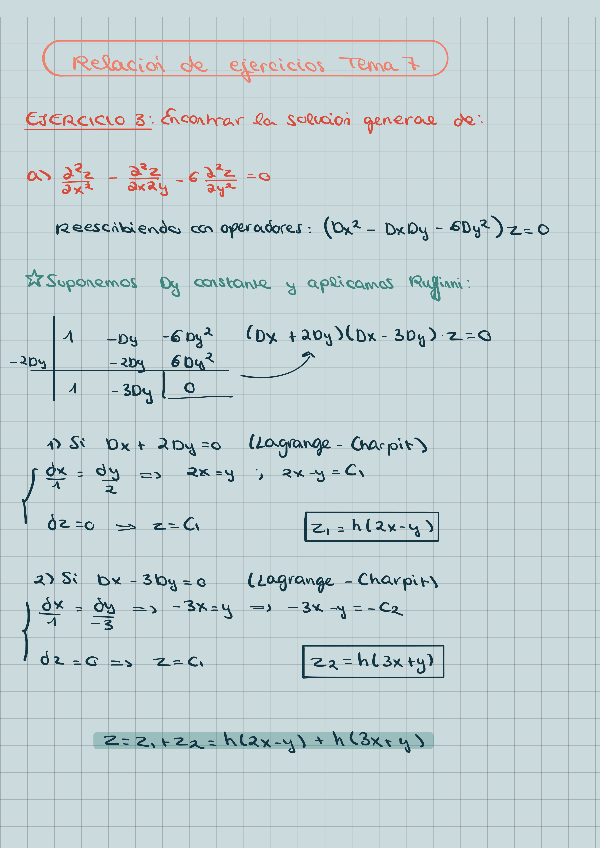 Relación de ejercicios Tema 7
EJERCICIO 3: Encontrar la solución general de:
a) ∂²z/∂x² - ∂²z/∂x∂y - 6 ∂²z/∂y² = 0
Reescribiendo con operadores: (Dx² - DxDy - 6Dy²) z = 0
☆ Suponemos Dy constante y aplicamos Ruffini:
1 -Dy -6Dy² (Dx + 2Dy)(Dx - 3Dy)·z = 0
-2Dy -2Dy 6Dy²
1 -3Dy 0
1) Si Dx + 2Dy = 0 (Lagrange - Charpit)
dx/1 = dy/2 => 2x = y ; 2x - y = C₁
dz = 0 => z = C₁ z₁ = h(2x - y)
2) Si Dx - 3Dy = 0 (Lagrange - Charpit)
dx/1 = dy/-3 => -3x = y => -3x - y = -C₂
dz = 0 => z = C₁ z₂ = h(3x + y)
z = z₁ + z₂ = h(2x - y) + h(3x + y)